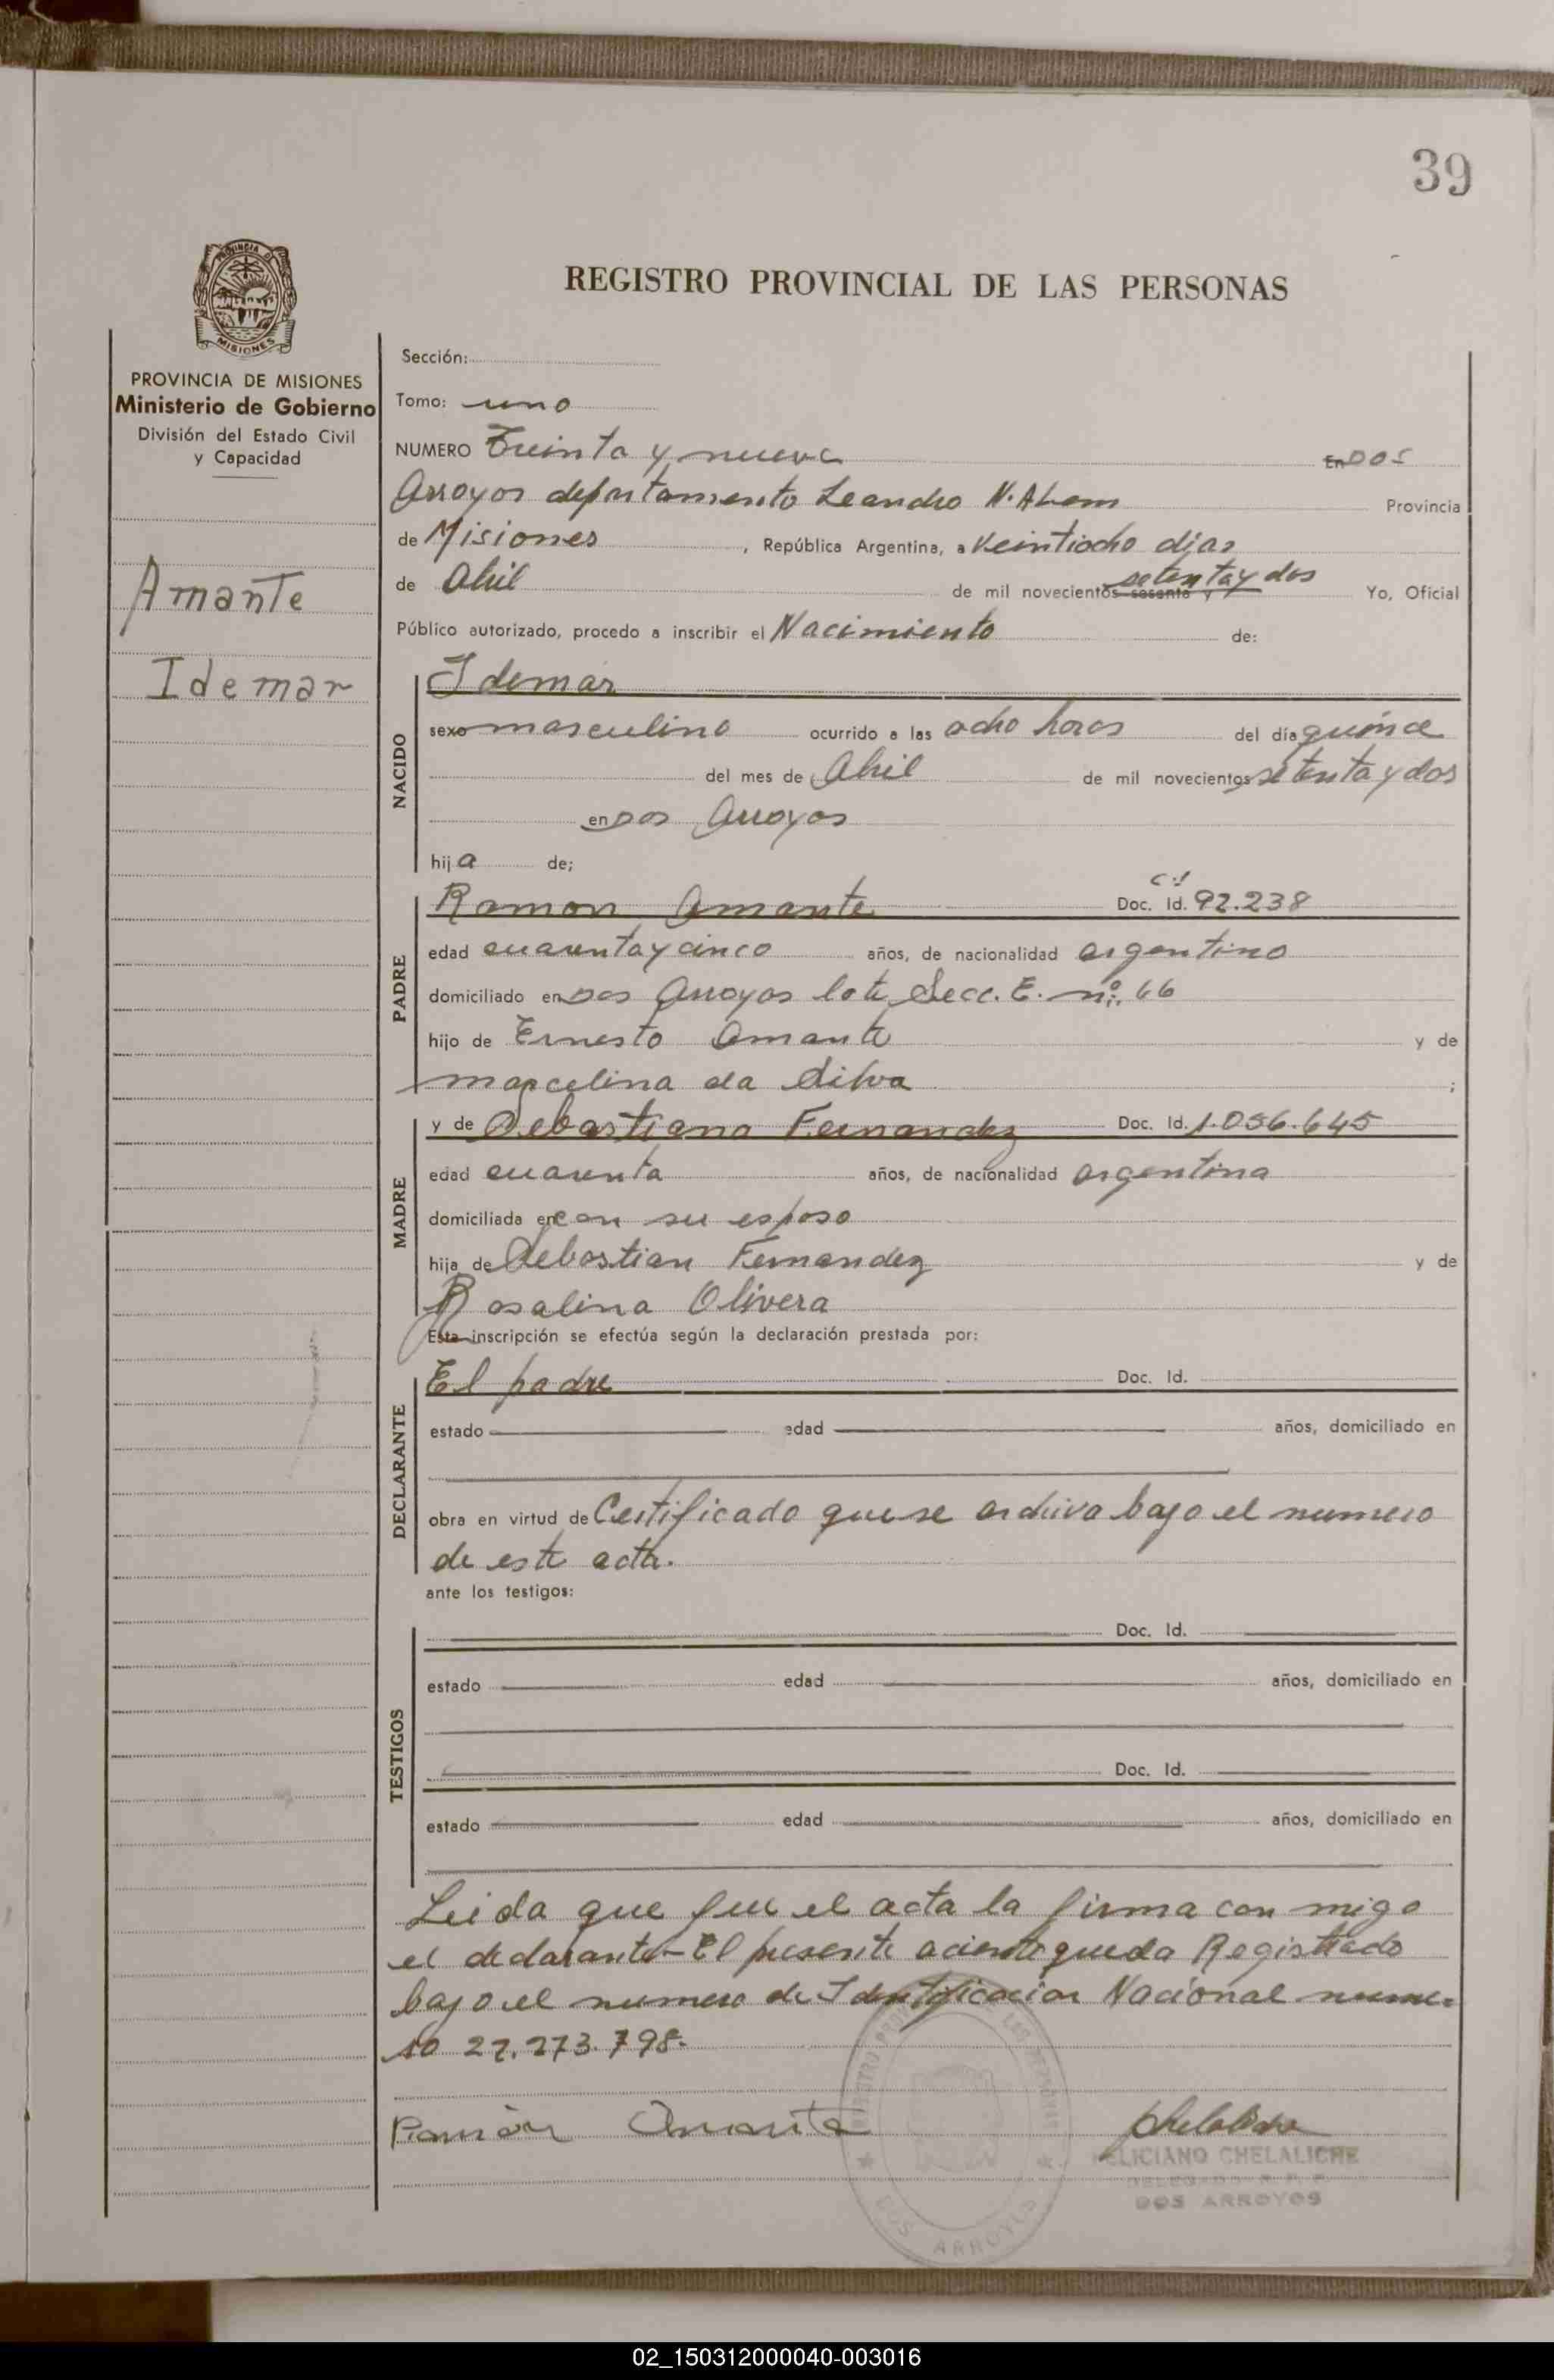 39
PROVINCIA DE
MISIONES
REGISTRO PROVINCIAL DE LAS PERSONAS
PROVINCIA DE MISIONES
Ministerio de Gobierno
División del Estado Civil
y Capacidad
Amante
Idemar
Sección:
Tomo: uno
NUMERO Treinta y nueve En Dos
Arroyos departamento Leandro N. Alem Provincia
de Misiones, República Argentina, a veintiocho dias
de Abril de mil novecientos sesenta y setenta y dos Yo, Oficial
Público autorizado, procedo a inscribir el Nacimiento de:
NACIDO
Idemar
sexo masculino ocurrido a las ocho horas del día quince
del mes de Abril de mil novecientos setenta y dos
en Dos Arroyos
hija de;
PADRE
Ramon Amante Doc. Id. C.I 92.238
edad cuarenta y cinco años, de nacionalidad argentino
domiciliado en Dos Arroyos lote Secc. E. nº. 66
hijo de Ernesto Amante y de
marcelina da Silva ;
MADRE
y de Sebastiana Fernandez Doc. Id. 1.056.645
edad cuarenta años, de nacionalidad argentina
domiciliada en con su esposo
hija de Sebastian Fernandez y de
Rosalina Olivera
Esta inscripción se efectúa según la declaración prestada por:
DECLARANTE
El padre Doc. Id.
estado edad años, domiciliado en
obra en virtud de Certificado que se archiva bajo el numero
de este acta.
ante los testigos:
TESTIGOS
Doc. Id.
estado edad años, domiciliado en
Doc. Id.
estado edad años, domiciliado en
Leida que fue el acta la firma con migo
el declarante - El presente aciento queda Registrado
bajo el numero de Identificacion Nacional nume-
ro 22.273.798.-
Ramón Amante Chelaliche
FELICIANO CHELALICHE
DELEGADO R. P. P.
DOS ARROYOS
DOS ARROYOS
02_150312000040-003016